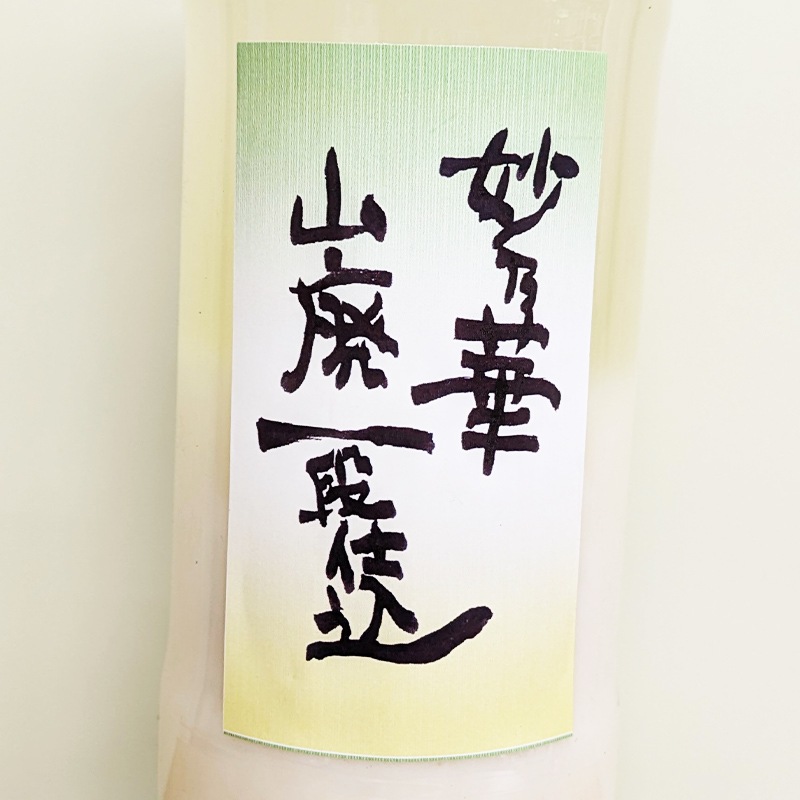 妙乃華
山廃一段仕込